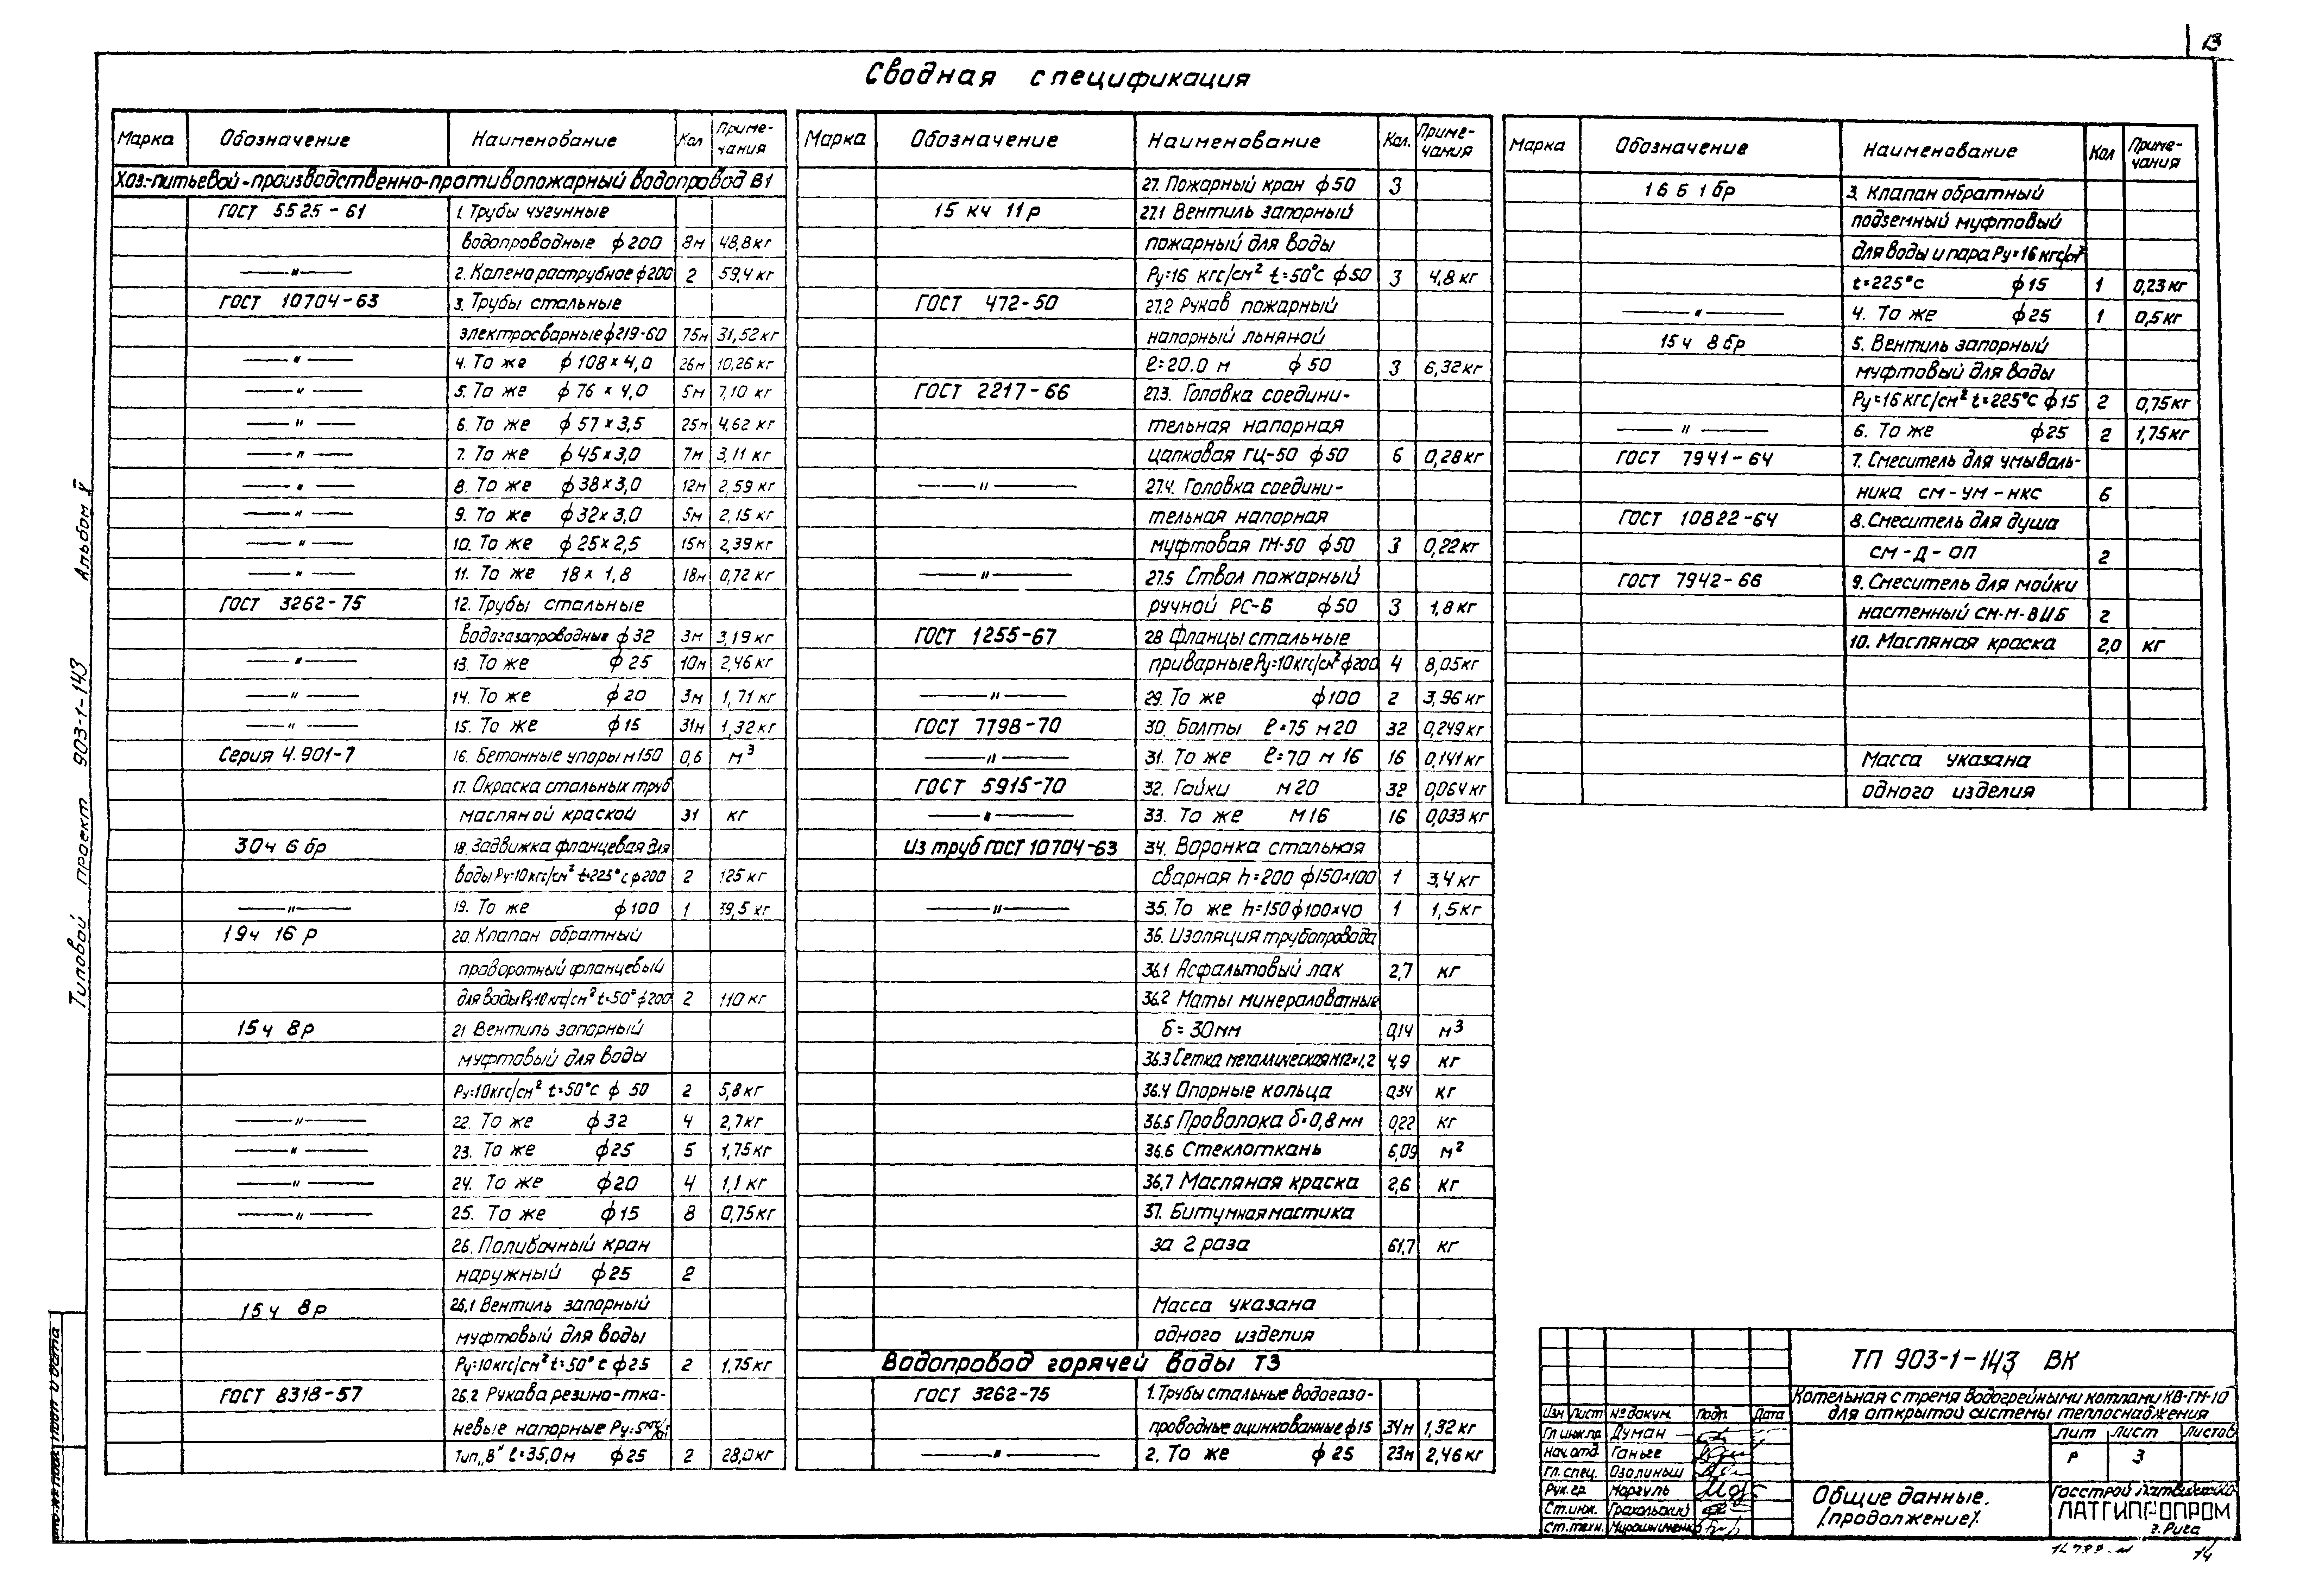 13
Сводная спецификация
Марка Обозначение Наименование Кол Приме-чания
Хоз.-питьевой-производственно-противопожарный водопровод В1
ГОСТ 5525-61 1. Трубы чугунные
водопроводные ф200 8м 48,8кг
—〃— 2. Колена раструбное ф200 2 59,4 кг
ГОСТ 10704-63 3. Трубы стальные
электросварные ф219-60 75м 31,52кг
—〃— 4. То же ф108×4,0 26м 10,26 кг
—〃— 5. То же ф76×4,0 5м 7,10 кг
—〃— 6. То же ф57×3,5 25м 4,62 кг
—〃— 7. То же ф45×3,0 7м 3,11 кг
—〃— 8. То же ф38×3,0 12м 2,59 кг
—〃— 9. То же ф32×3,0 5м 2,15 кг
—〃— 10. То же ф25×2,5 15м 2,39 кг
—〃— 11. То же 18×1,8 18м 0,72 кг
ГОСТ 3262-75 12. Трубы стальные
водогазопроводные ф32 3м 3,19 кг
—〃— 13. То же ф25 10м 2,46 кг
—〃— 14. То же ф20 3м 1,71 кг
—〃— 15. То же ф15 31м 1,32 кг
Серия 4.901-7 16. Бетонные упоры м150 0,6 м³
17. Окраска стальных труб
масляной краской 31 кг
30ч 6 бр 18. Задвижка фланцевая для
воды Ру=10кгс/см² t=225°с ф200 2 125 кг
—〃— 19. То же ф100 1 39,5 кг
19ч 16 р 20. Клапан обратный
праворотный фланцевый
для воды Ру10кгс/см² t=50° ф200 2 110 кг
15ч 8р 21 Вентиль запорный
муфтовый для воды
Ру=10кгс/см² t=50°с ф 50 2 5,8 кг
—〃— 22. То же ф32 4 2,7 кг
—〃— 23. То же ф25 5 1,75 кг
—〃— 24. То же ф20 4 1,1 кг
—〃— 25. То же ф15 8 0,75 кг
26. Поливочный кран
наружный ф25 2
15ч 8р 26.1 Вентиль запорный
муфтовый для воды
Ру=10кгс/см² t=50°с ф25 2 1,75 кг
ГОСТ 8318-57 26.2 Рукава резино-тка-
невые напорные Ру=5
Тип „В" ℓ=35,0м ф25 2 28,0кг
Марка Обозначение Наименование Кол. Приме-чания
27. Пожарный кран ф50 3
15 кч 11р 27.1 Вентиль запорный
пожарный для воды
Ру=16 кгс/см² t=50°с ф50 3 4,8 кг
ГОСТ 472-50 27.2 Рукав пожарный
напорный льняной
ℓ=20.0 м ф50 3 6,32 кг
ГОСТ 2217-66 27.3. Головка соедини-
тельная напорная
цапковая ГЦ-50 ф50 6 0,28кг
—〃— 27.4. Головка соедини-
тельная напорная
муфтовая ГМ-50 ф50 3 0,22кг
—〃— 27.5 Ствол пожарный
ручной РС-Б ф50 3 1,8 кг
ГОСТ 1255-67 28 Фланцы стальные
приварные Ру=10кгс/см² ф200 4 8,05кг
—〃— 29. То же ф100 2 3,96 кг
ГОСТ 7798-70 30. Болты ℓ=75 м20 32 0,249кг
—〃— 31. То же ℓ=70 м 16 16 0,141кг
ГОСТ 5915-70 32. Гайки м20 32 0,064 кг
—〃— 33. То же М16 16 0,033 кг
Из труб ГОСТ 10704-63 34. Воронка стальная
сварная h=200 ф150×100 1 3,4 кг
—〃— 35. То же h=150 ф100×40 1 1,5кг
36. Изоляция трубопровода
36.1 Асфальтовый лак 2,7 кг
36.2 Маты минераловатные
δ=30мм 0,14 м³
36.3 Сетка металлическая М12×1,2 4,9 кг
36.4 Опорные кольца 0,34 кг
36.5 Проволока δ=0,8мм 0,22 кг
36.6 Стеклоткань 6,09 м²
36.7 Масляная краска 2,6 кг
37. Битумная мастика
за 2 раза 61,7 кг
Масса указана
одного изделия
Водопровод горячей воды Т3
ГОСТ 3262-75 1. Трубы стальные водогазо-
проводные оцинкованные ф15 34м 1,32 кг
—〃— 2. То же ф25 23м 2,46 кг
Марка Обозначение Наименование Кол Приме-чания
16 Б 1 бр 3. Клапан обратный
подземный муфтовый
для воды и пара Ру=16 кгс/см²
t=225°с ф15 1 0,23кг
—〃— 4. То же ф25 1 0,5кг
15ч 8бр 5. Вентиль запорный
муфтовый для воды
Ру=16кгс/см² t=225°с ф15 2 0,75кг
—〃— 6. То же ф25 2 1,75кг
ГОСТ 7941-64 7. Смеситель для умываль-
ника см-ум-нкс 6
ГОСТ 10822-64 8. Смеситель для душа
см-д-оп 2
ГОСТ 7942-66 9. Смеситель для мойки
настенный см-м-ВЦБ 2
10. Масляная краска 2,0 кг
Масса указана
одного изделия
Типовой проект 903-1-143 Альбом V
Подп и дата
ТП 903-1-143 ВК
Котельная с тремя водогрейными котлами КВ-ГМ-10
для открытой системы теплоснабжения
Изм Лист №докум. Подп. Дата
Гл.инж.пр. Думан
Нач.отд. Ганьге
Гл. спец. Озолиньш
Рук.гр. Маргуль
Ст.инж. Грахольский
Ст.техн. Мирошниченко
Лит Лист Листов
Р 3
Общие данные.
(продолжение).
Госстрой Латвийской
ЛАТГИПРОПРОМ
г. Рига
14